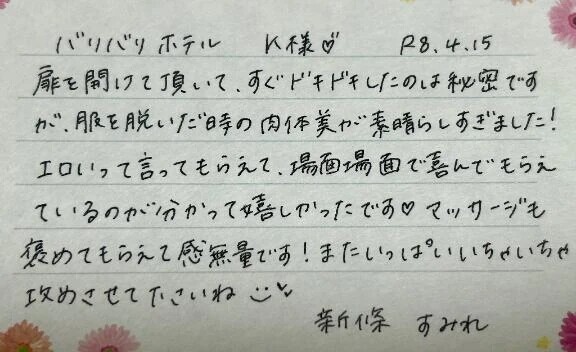 バリバリホテル K様♡ R8.4.15
扉を開けて頂いて、すぐドキドキしたのは秘密です
が、服を脱いだ時の肉体美が素晴らしすぎました!
エロいって言ってもらえて、場面場面で喜んでもらえ
ているのが分かって嬉しかったです♡ マッサージも
褒めてもらえて感無量です!またいっぱいいちゃいちゃ
攻めさせて下さいね
新條 すみれ